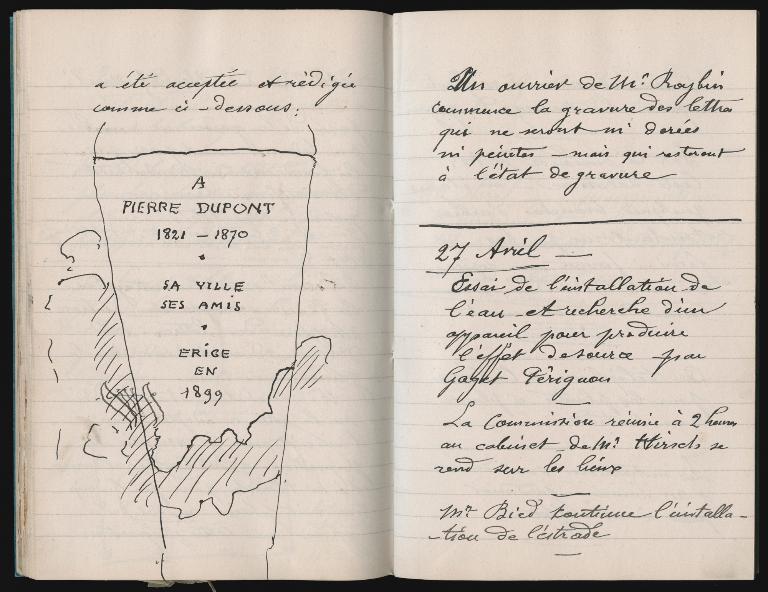 a été acceptée et rédigée
comme ci-dessous:
A
PIERRE DUPONT
1821 – 1870
SA VILLE
SES AMIS
ERIGE
EN
1899
Un ouvrier de Mr. Roybin
commence la gravure des lettres
qui ne seront ni dorées
ni peintes – mais qui resteront
à l'état de gravure
27 Avril —
Essai de l'installation de
l'eau – et recherche d'un
appareil pour produire
l'effet de source par
Gaget Pérignon
La Commission réunie à 2 heures
au cabinet de Mr. Hirsch se
rend sur les lieux
Mr Bied continue l'installa-
-tion de l'estrade